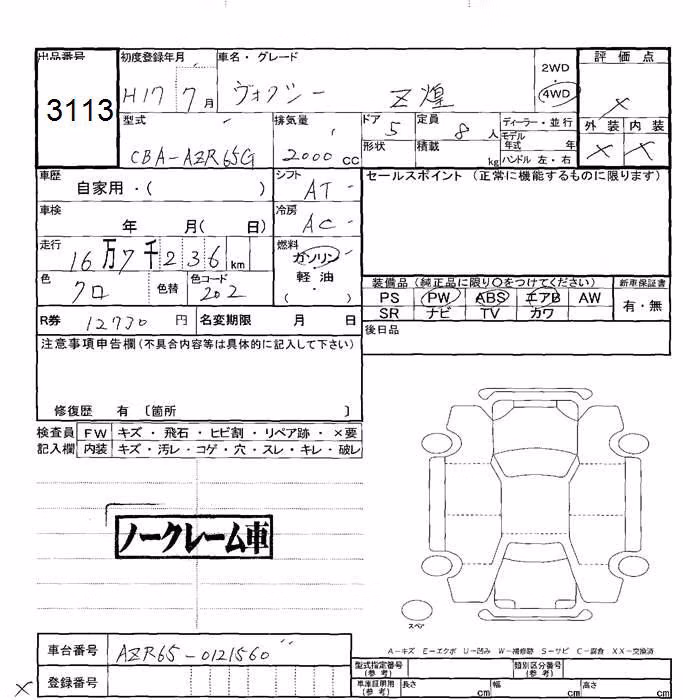 出品番号
3113
初度登録年月
H17 7月
車名・グレード
ヴォクシー Z 煌
2WD
4WD
評価点
×
外装 内装
× ×
型式
CBA-AZR65G
排気量
2000cc
ドア
5
形状
定員
8人
積載
kg
ディーラー・並行
モデル年式 年
ハンドル 左・右
車歴
自家用・( )
シフト
AT
セールスポイント (正常に機能するものに限ります)
車検
年 月( 日)
冷房
AC
走行
16万7千236km
燃料
ガソリン
軽油
( ・ )
色
クロ
色替
色コード
202
装備品 (純正品に限り○をつけてください)
新車保証書
PS PW ABS エアB AW
有・無
SR ナビ TV カワ
R券 12730円
名変期限 月 日
後日品
注意事項申告欄(不具合内容等は具体的に記入して下さい)
修復歴 有 〔箇所 〕
検査員記入欄
FW キズ・飛石・ヒビ割・リペア跡・×要
内装 キズ・汚レ・コゲ・穴・スレ・キレ・破レ
ノークレーム車
スペア
A-キズ E-エクボ U-凹み W-補修跡 S-サビ C-腐食 XX-交換済
車台番号
AZR65-0121560
× 登録番号
型式指定番号(参考)
類別区分番号(参考)
車庫証明用(参考)
長さ cm
幅 cm
高さ cm